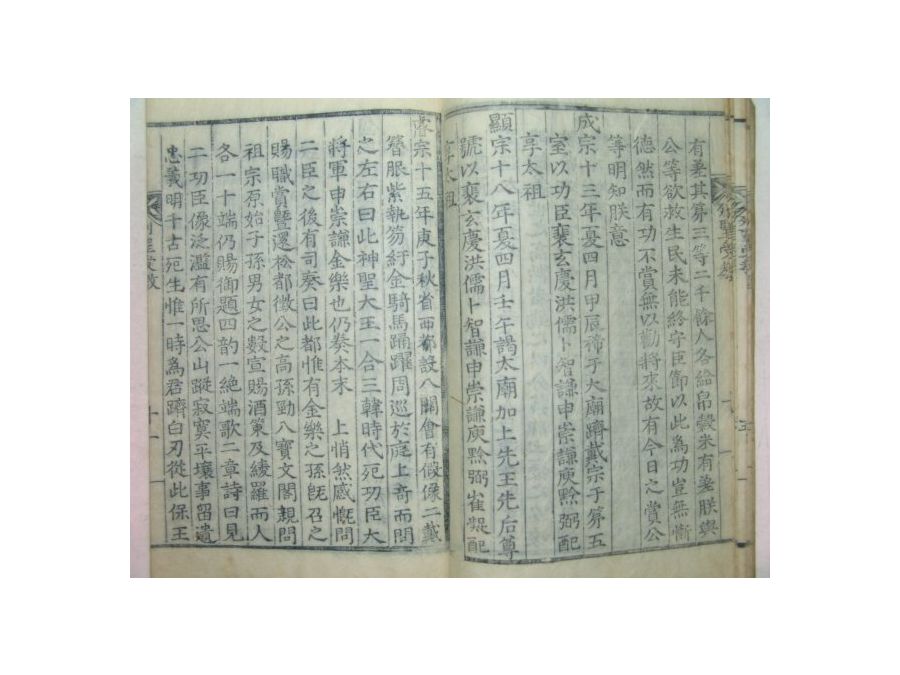 有差其第三等二千餘人各給帛穀米有差朕與
公等欲救生民未能終守臣節以此為功豈無慚
德然而有功不賞無以勸將來故有今日之賞公
等明知朕意
成宗十三年夏四月甲辰禘于大廟躋戴宗于第五
室以功臣裵玄慶洪儒卜智謙申崇謙庾黔弼配
享太祖
顯宗十八年夏四月壬午謁太廟加上先王先后尊
號以裵玄慶洪儒卜智謙申崇謙庾黔弼崔凝配
享太祖
睿宗十五年庚子秋省西都設八關會有假像二戴
簪服紫執笏紆金騎馬踊躍周巡於庭上奇而問
之左右曰此神聖大王一合三韓時代死功臣大
將軍申崇謙金樂也仍奏本末 上悄然感慨問
二臣之後有司奏曰此都惟有金樂之孫旣召之
賜職賞曁還松都徵公之高孫勁八寶文閣親問
祖宗原始子孫男女之數宣賜酒菓及綾羅而人
各一十端仍賜御題四韵一絶端歌二章詩曰見
二功臣像泛濫有所思公山蹤寂寞平壤事留遺
忠義明千古死生惟一時爲君躋白刃從此保王